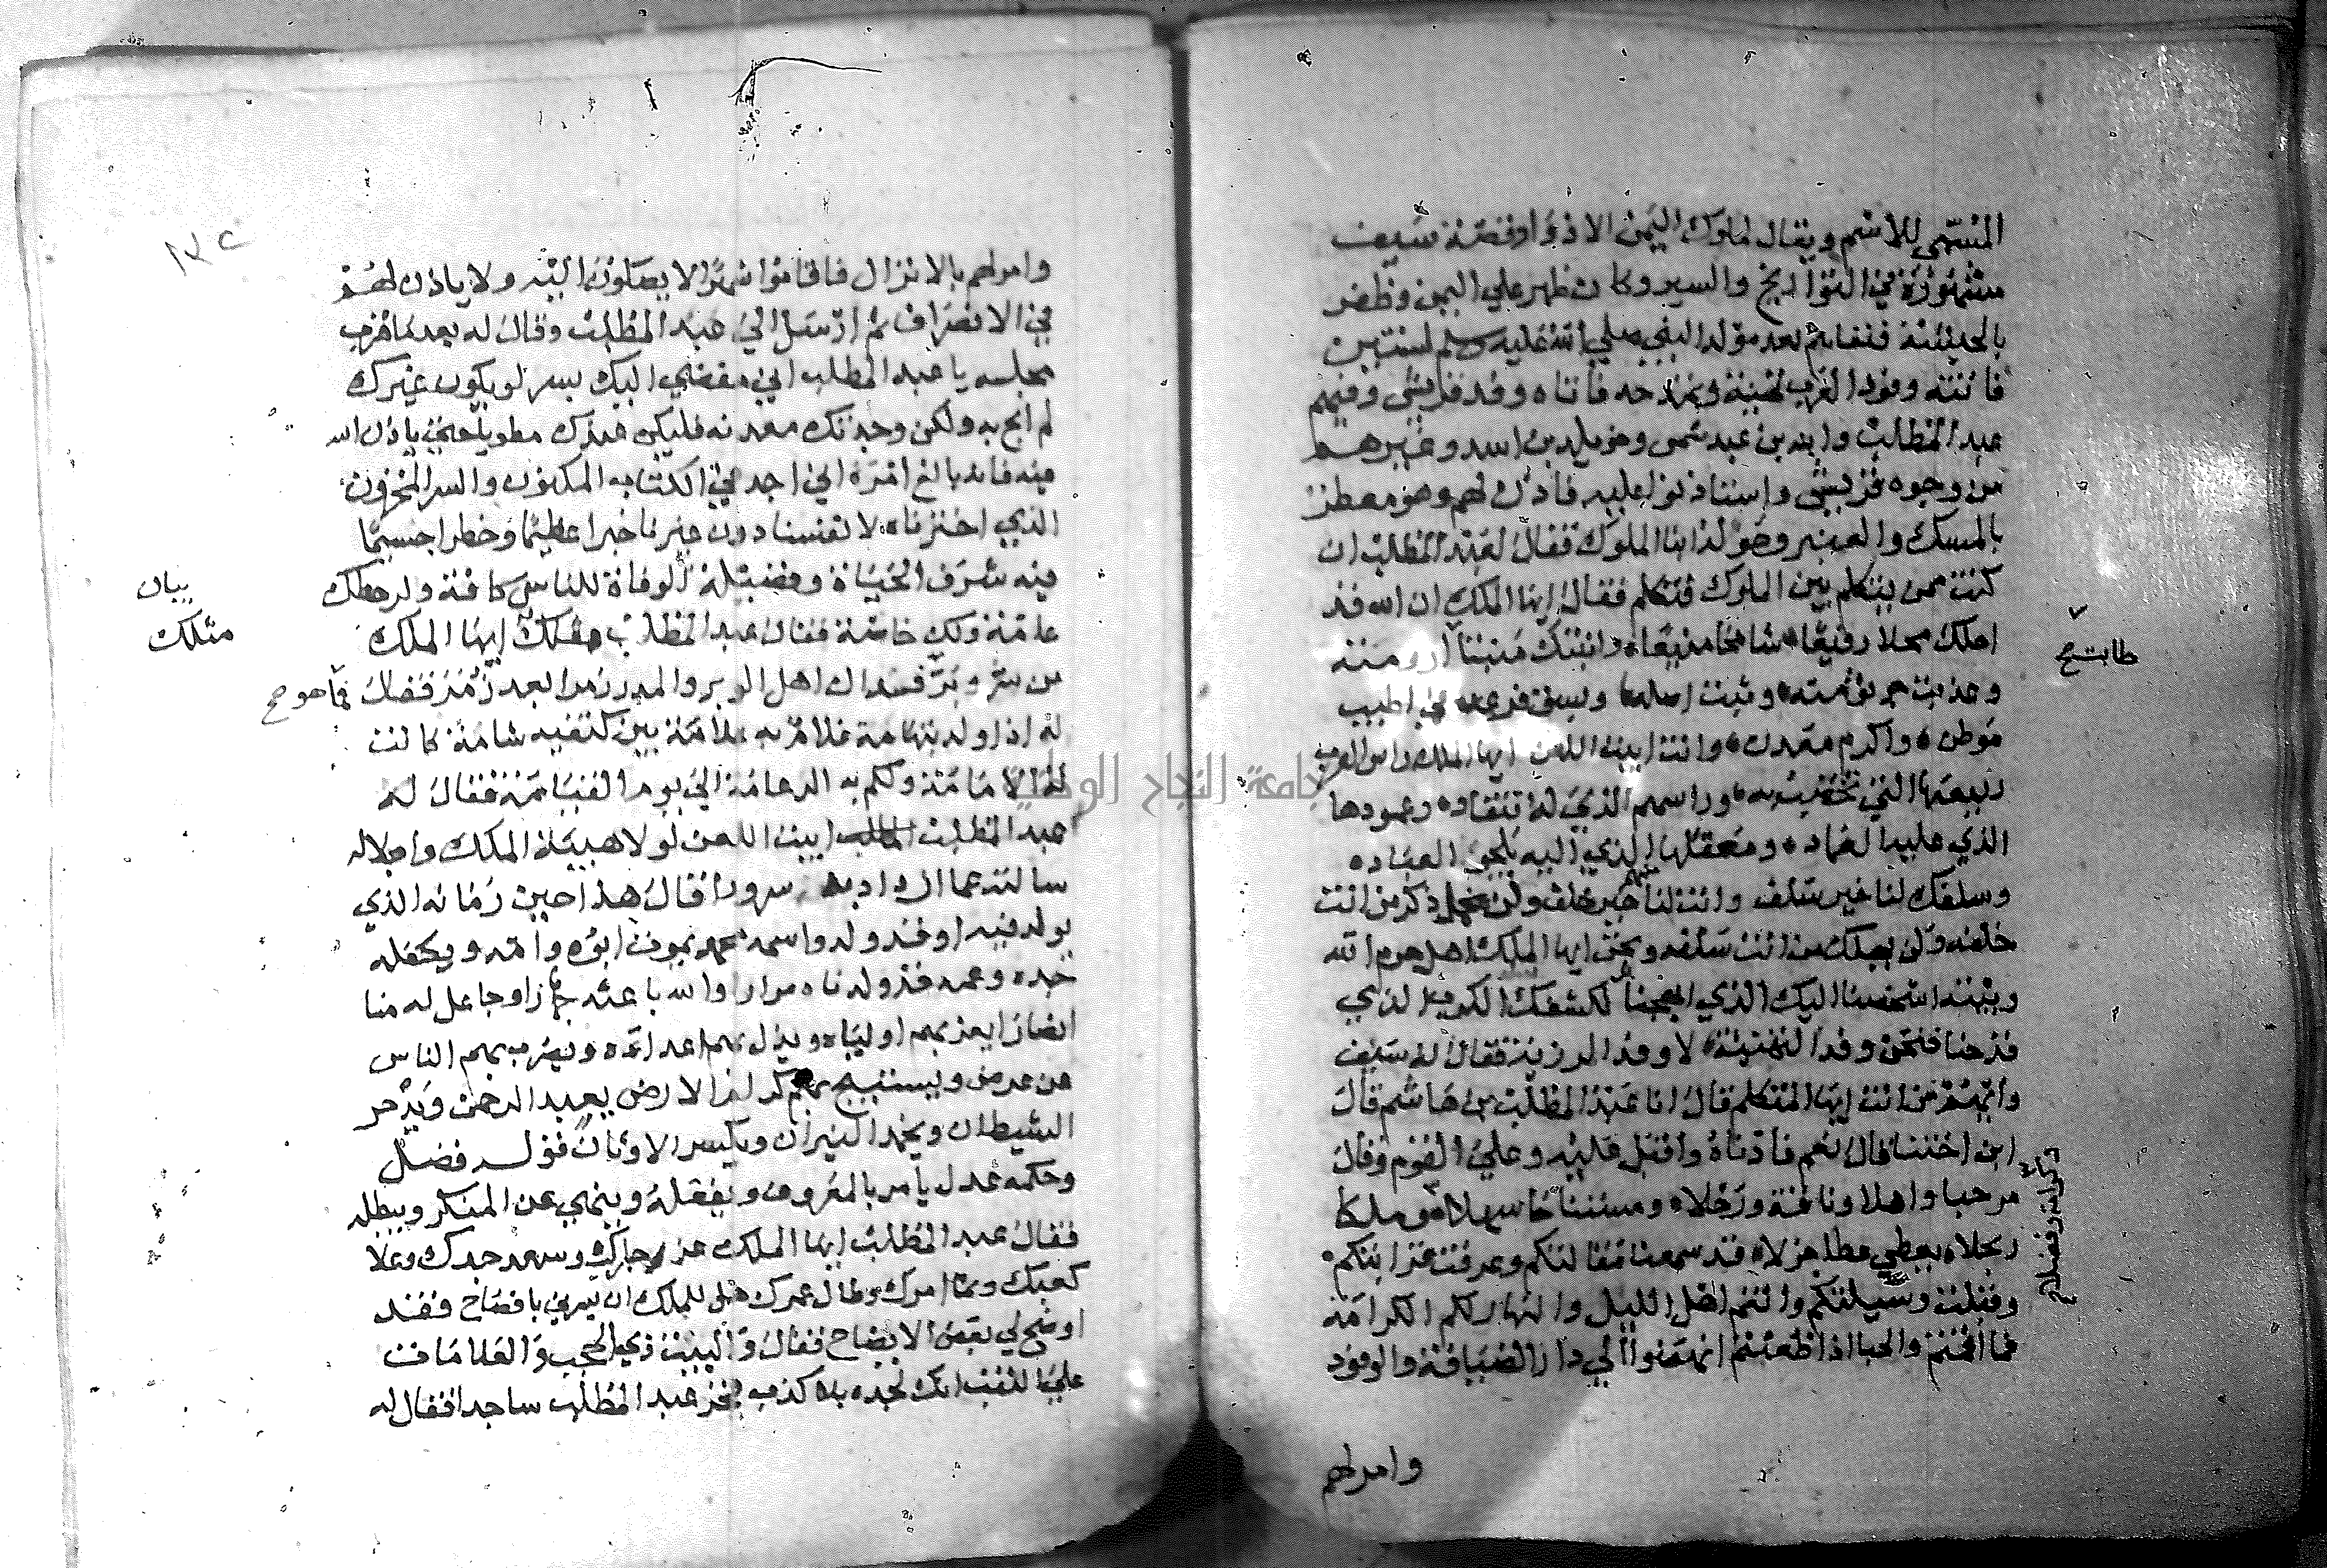 المنتمي للاشم ويقال لملوك اليمن الاذوا وقصة سيف
مشهورة في التواريخ والسير وكان ظهر على اليمن وظفر
بالحبشة فنفاهم بعد مولد النبي صلي الله عليه وسلم بسنتين
فاتته وفود العرب تهنيه وتمدحه فاتاه وفد قريش وفيهم
عبد المطلب واميه بن عبد شمس وخويلد بن اسد وغيرهم
من وجوه قريش واستاذنوا عليه فاذن لهم وهو معطر
بالمسك والعنبر وحوله ابنا الملوك فقال لعبد المطلب ان
كنت ممن يتكلم بين الملوك فتكلم فقال ايها الملك ان الله قد
احلك محلا رفيعا شامخا منيعا وانبتك منبتا ارومته
وعذبت جرثومته وثبت اصله وبسق فرعه في اطيب
موطن واكرم معدن وانت ابيت اللعن ايها الملك راس العرب
ربيعها التي تخصب به وراسهم الذي له تنقاد وعمودها
الذي عليه العماد ومعقلها الذي اليه يلجئ العباد
وسلفك لنا خير سلف وانت لنا منهم خير خلف ولن يخمل ذكر من انت
خلفه ولن يهلك من انت سلفه ونحن ايها الملك اهل حرم الله
وبيته اشخصنا اليك الذي ابهجنا لكشفك الكرب الذي
فدحنا فنحن وفد التهنيئة لا وفد المرزية فقال له سيف
وايهم من انت ايها المتكلم قال انا عبد المطلب بن هاشم قال
ابن اختنا قال نعم فادناه واقبل عليه وعلي القوم وقال
مرحبا واهلا وناقة ورحلا ومستناخا سهلا وملكا
ربحلا يعطي عطا جزلا قد سمعنا مقالتكم وعرفت قرابتكم
وقبلت وسيلتكم وانتم اهل الليل والنهار لكم الكرامة
ما اقمتم والحبا اذا ظعنتم انهضوا الي دار الضيافة والوفود
وامر لهم
طابت صح
وامر لهم بالانزال فاقاموا شهرا لا يصلون اليه ولا ياذن لهم
في الانصراف ثم ارسل الي عبد المطلب وقال له بعد ما قرب
مجلسه يا عبد المطلب اني مفضي اليك بسر لو يكون غيرك
لم ابح به ولكن وجدتك معدنه فليكن عندك مطويا حتي ياذن الله
فيه فان الله بالغ امره اني اجد في الكتاب المكنون والسر المخزون
الذي اخترناه لانفسنا دون غيرنا خبرا عظيما وخطرا جسيما
فيه شرف الحياة وفضيلة الوفاة للناس كافة ولرهطك
عامة ولك خاصة فقال عبد المطلب مثلك ايها الملك
من سر وبر فداك اهل الوبر والمدر زمرا بعد زمر فقال
له اذا ولد بتهامة غلام به علامة بين كتفيه شامة كانت
له الامامة ولكم به الزعامة الي يوم القيامة فقال له
عبد المطلب ابيت اللعن لولا هيبة الملك واجلاله
سالته عما ازداد به سرورا فقال هذا حين زمانه الذي
يولد فيه او قد ولد واسمه محمد يموت ابوه وامه ويكفله
جده وعمه قد ولدناه مرارا والله باعثه جهارا وجاعل له منا
انصارا يعز بهم اولياه ويذل بهم اعداءه ويضرب بهم الناس
عن عرض ويستبيح بهم كرايم الارض يعبد الرحمن ويدحر
الشيطان ويخمد النيران ويكسر الاوثان قوله فصل
وحكمه عدل يامر بالمعروف ويفعله وينهي عن المنكر ويبطله
فقال عبد المطلب ايها الملك عز جارك وسعد جدك وعلا
كعبك ونما امرك وطال عمرك هل للملك ان يسرني بافصاح فقد
اوضح لي بعض الايضاح فقال والبيت ذي الحجب والعلامات
علي النقب انك لجده بلا كذب فخر عبد المطلب ساجدا فقال له
بيان
مثلك
فما هو صح
جامعة النجاح الوطنية